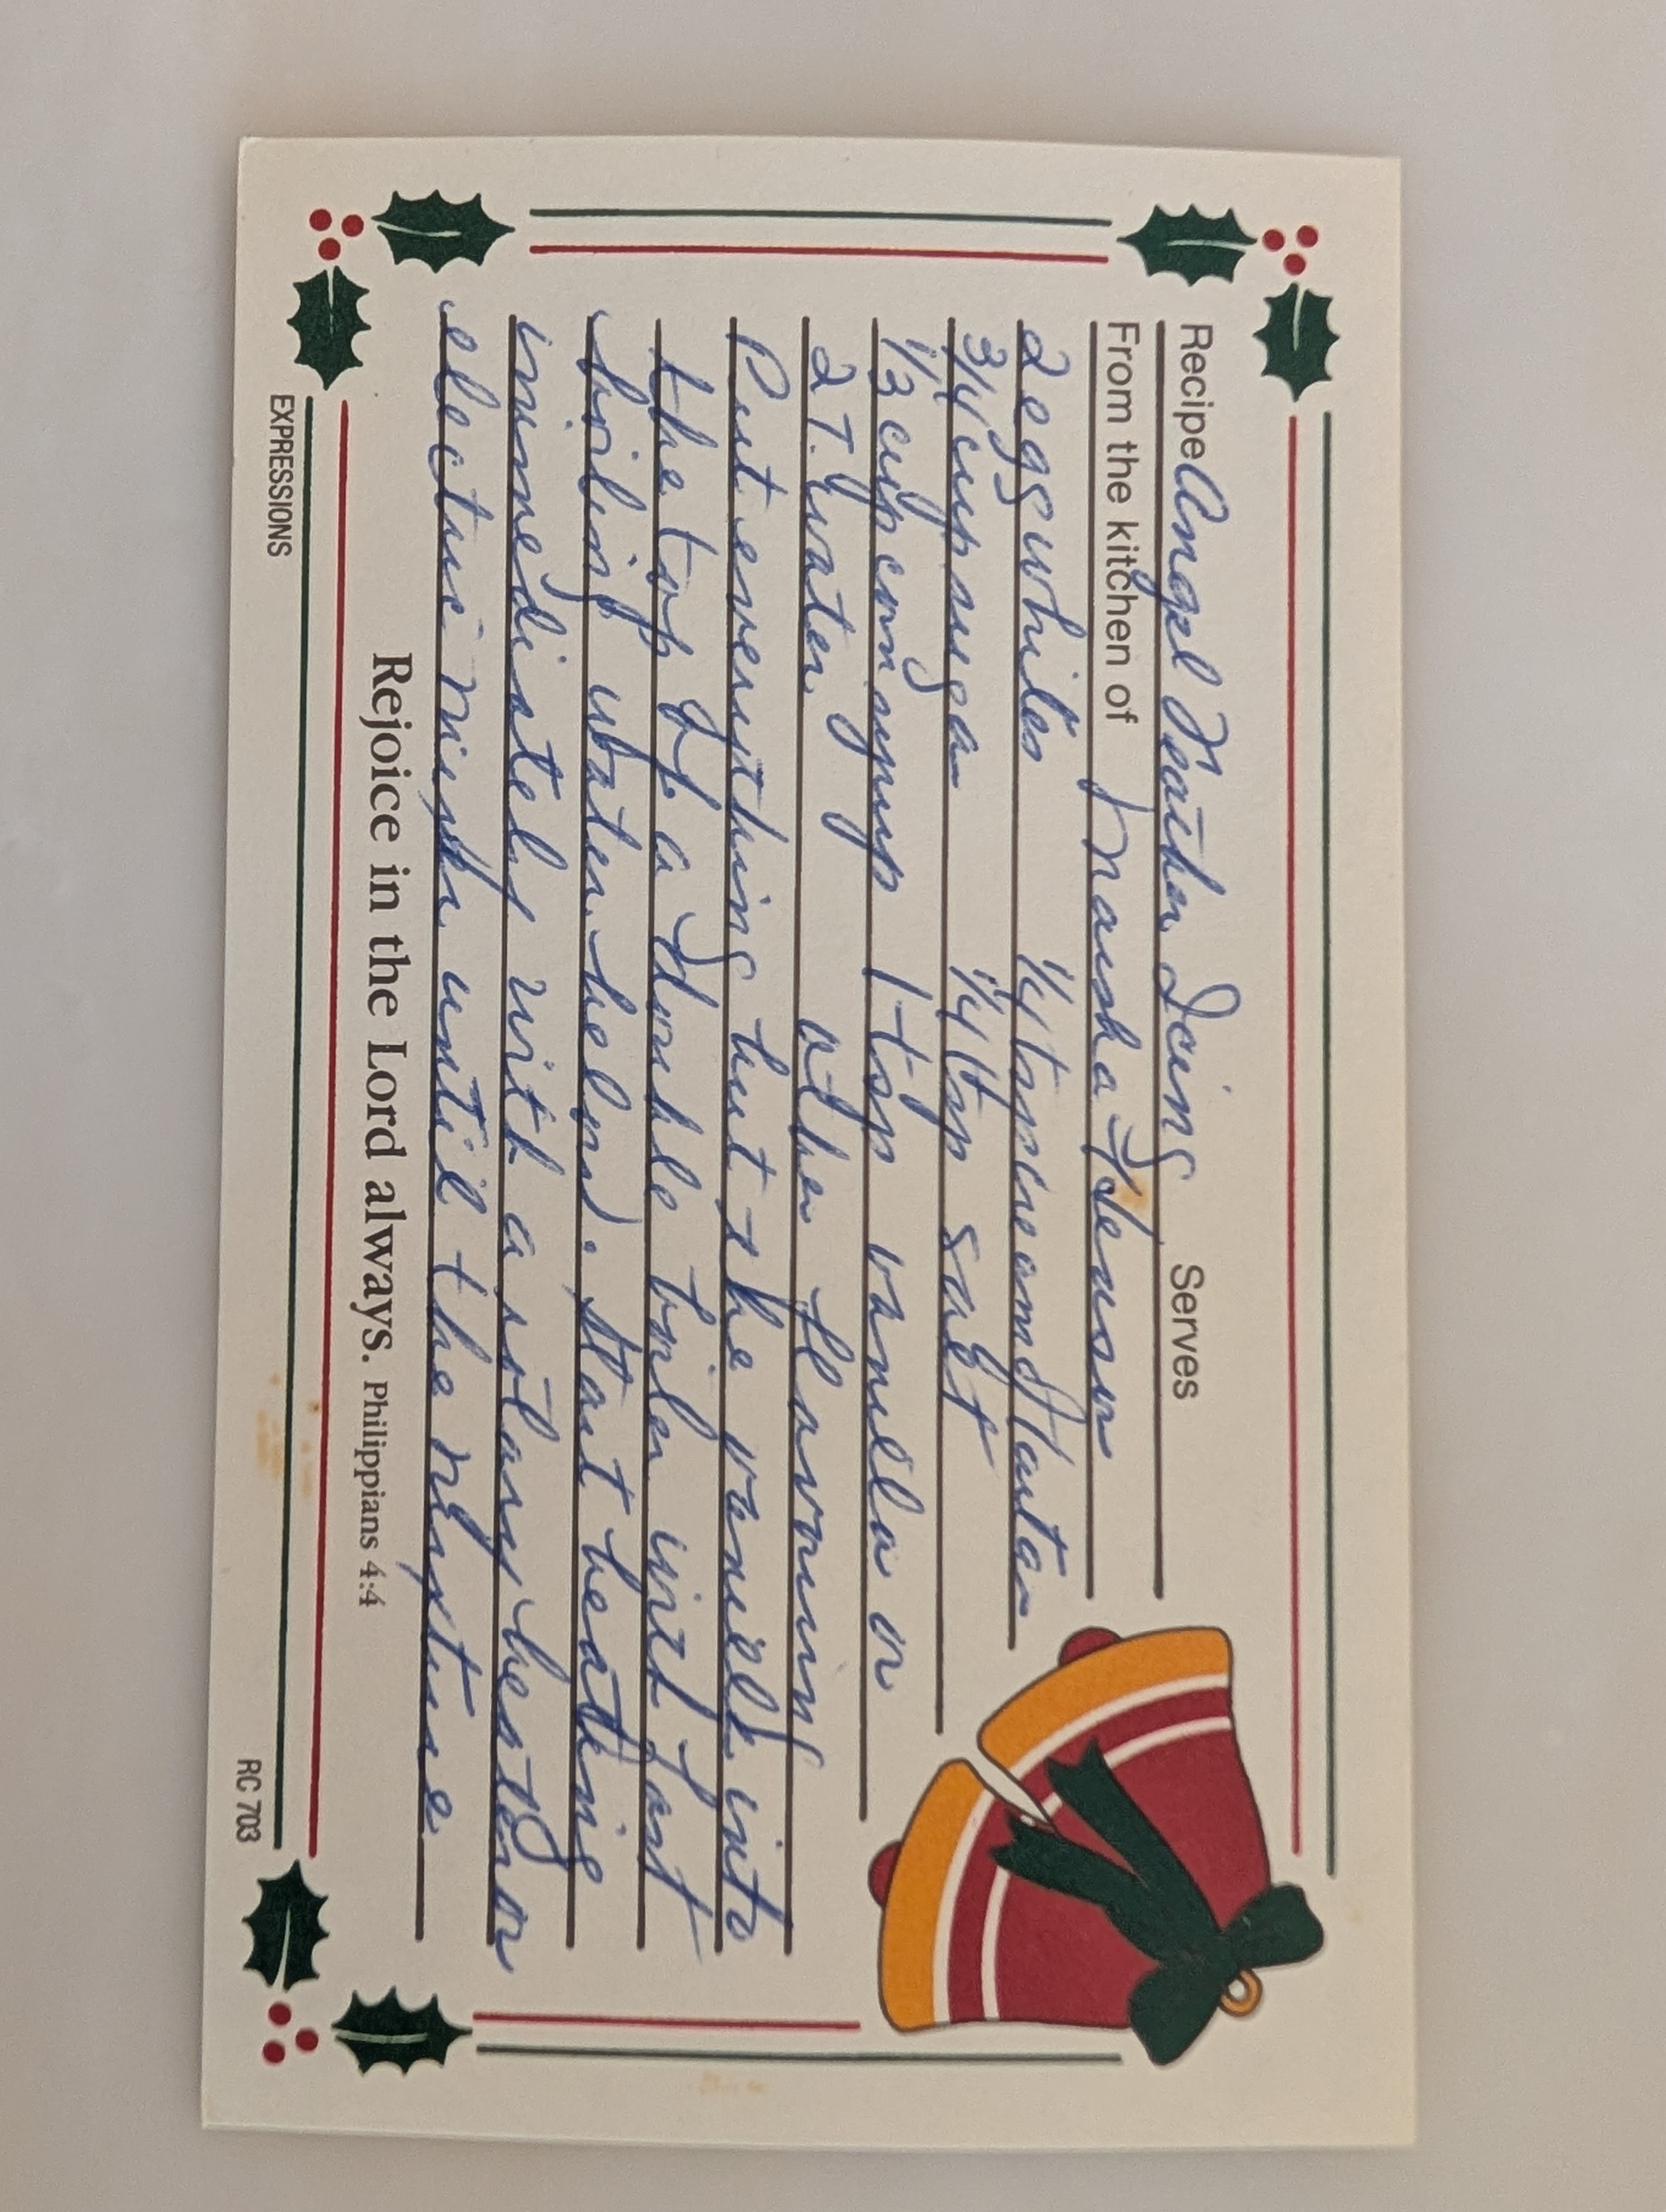 Recipe Angel Feather Icing Serves
From the kitchen of Marsha
2 eggs whites 1/4 tsp cream of tartar
3/4 cup sugar 1/4 tsp salt
1/3 cup corn syrup 1 tsp vanilla or
2 T. water other flavoring
Put everything but the vanilla into
the top of a double boiler with fast
boiling water below. Start beating
immediately with a rotary beater or
electric mixer until the mixture
Rejoice in the Lord always. Philippians 4:4
EXPRESSIONS RC 703